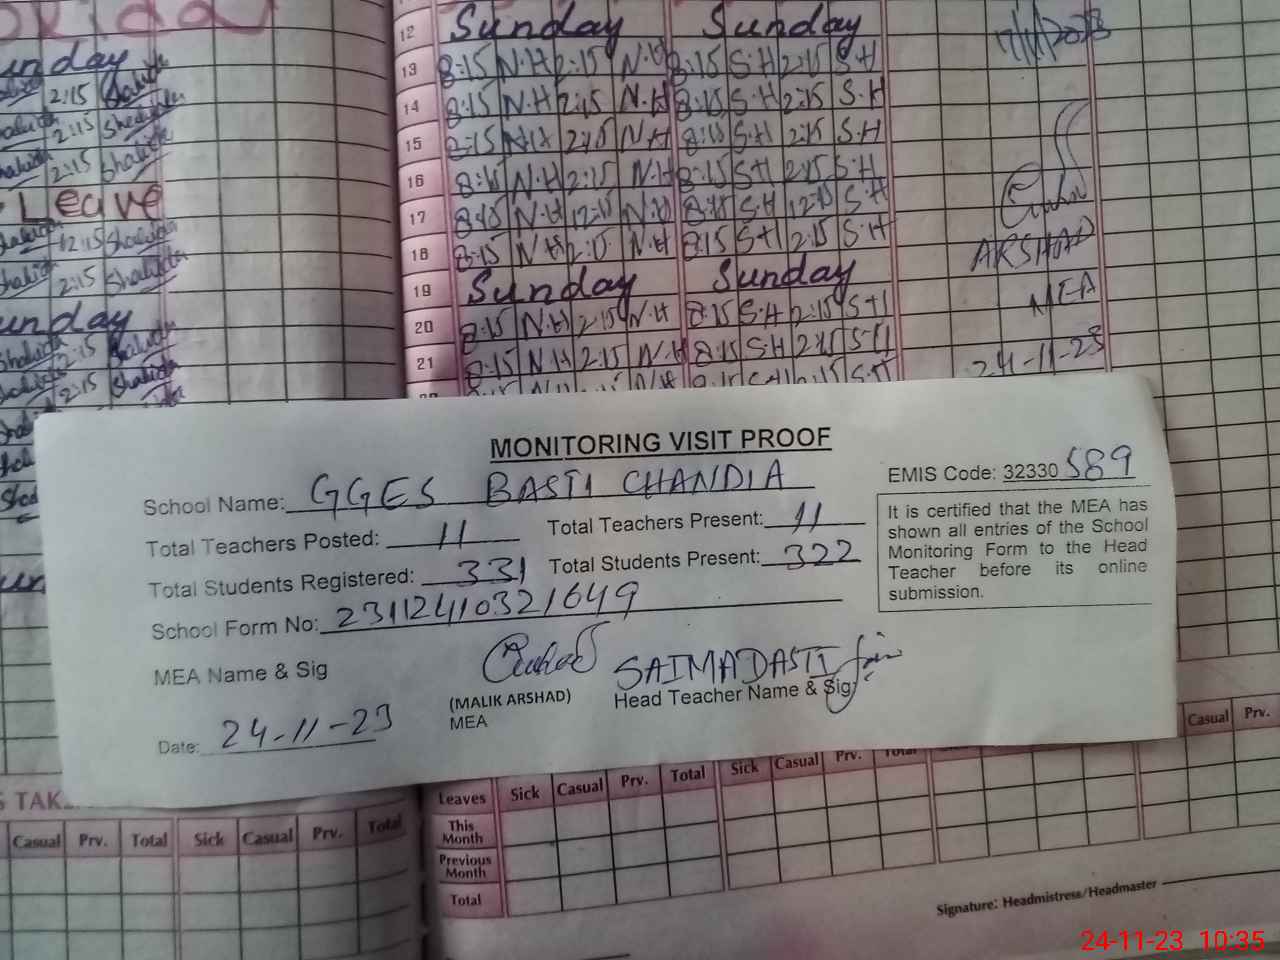 unday
2:15 Shahida
2:15 Shahida
Shahida 2:15 Shahida
Leave
Shahida 12:15 Shahida
Shahida 2:15 Shahida
unday
Shahida 2:15 Shahida
2:15 Shahida
12 Sunday Sunday
13 8:15 N.H 2:15 N.H 8:15 S.H 2:15 S.H
14 8:15 N.H 2:15 N.H 8:15 S.H 2:15 S.H
15 8:15 N.H 2:15 N.H 8:15 S.H 2:15 S.H
16 8:15 N.H 2:15 N.H 8:15 S.H 2:15 S.H
17 8:15 N.H 12:15 N.H 8:15 S.H 12:15 S.H
18 8:15 N.H 2:15 N.H 8:15 S.H 2:15 S.H
19 Sunday Sunday
20 8:15 N.H 2:15 N.H 8:15 S.H 2:15 S.H
21 8:15 N.H 2:15 N.H 8:15 S.H 2:15 S.H
ARSHAD
MEA
24-11-23
MONITORING VISIT PROOF
School Name: GGES BASTI CHANDIA
EMIS Code: 32330 589
Total Teachers Posted: 11 Total Teachers Present: 11
Total Students Registered: 331 Total Students Present: 322
School Form No: 23112410321649
It is certified that the MEA has
shown all entries of the School
Monitoring Form to the Head
Teacher before its online
submission.
MEA Name & Sig
(MALIK ARSHAD)
MEA
SAIMA DASTI
Head Teacher Name & Sig
Date: 24-11-23
S TAK
Casual Prv. Total Sick Casual Prv. Total
Leaves Sick Casual Prv. Total Sick Casual Prv. Total
Casual Prv.
This
Month
Previous
Month
Total
Signature: Headmistress/Headmaster
24-11-23 10:35